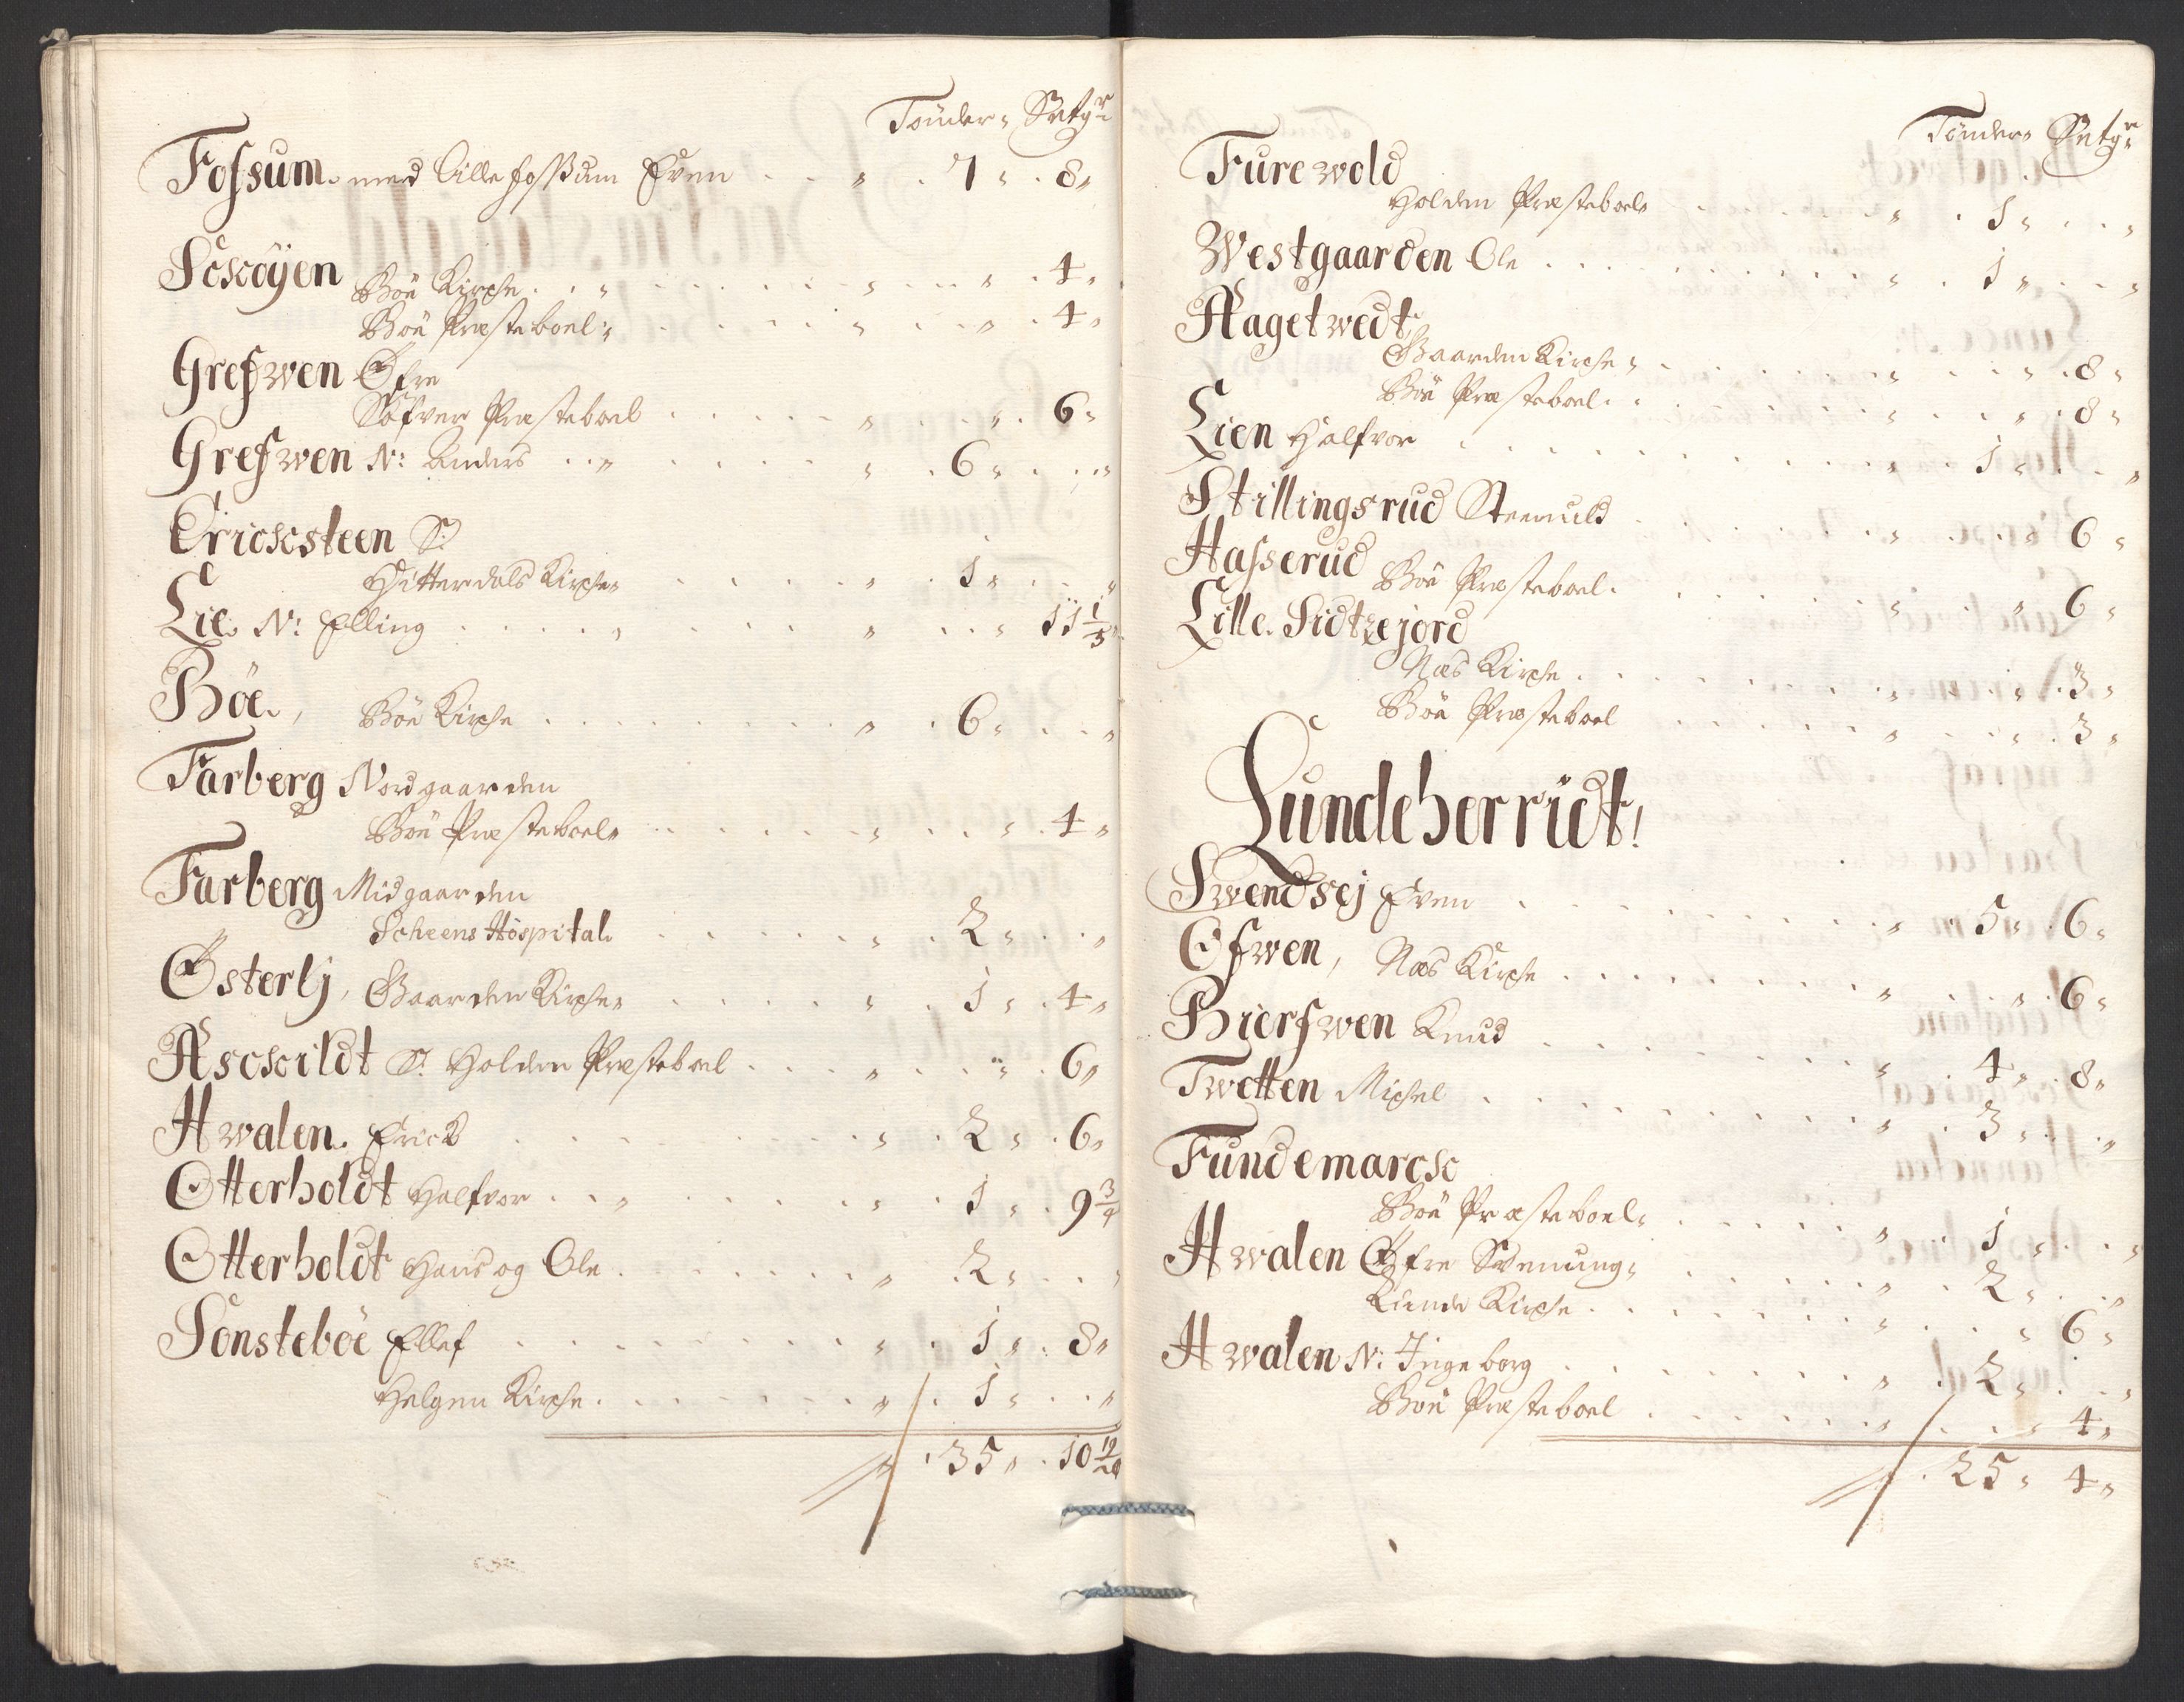 Tönder„ Setgr
Fossum. med Lille fossum Even . . „ . 7 „ . 8„
Sckoÿen
Böe Kirche . . „ . . . . . „ . . „ . 4„
Böe Præsteboel„ . . . . . „ . . „ . 4„
Grefwen Öfre
Söfver Præsteboel . . . . . „ . . „ . 6„
Grefwen N: Anders . . „ . . . . „ . 6„ . . „
Erichsteen S:
Hitterdals Kirche„ . . . . „ . 1„ . . „
Lie. N: Elling . . . . „ . . . „ . . „ 11 1/5„
Böe, Böe Kirche . . . . . . . „ . 6„ . . „
Farberg Nordgaarden
Böe Præsteboel„ . . . . „ . . „ . 4„
Farberg Midgaarden
Scheens Hospital. . . . . . „ . 2„ . . „
Österlj, Gaarden Kirche„ . . . . „ . 1„ . 4„
Asckildt S: Holden Præsteboel . . . „ . . „ . 6„
Hwalen. Erick . . . . . . . „ . 2„ . 6„
Otterholdt Halfvor . . „ . . . . „ . 1„ . 9 3/4
Otterholdt Hans og Ole . . . . . . „ . 2„ . . „
Sönsteböe Ellef . . . . . . . „ . 1„ . 8„
Helgen Kirche . . . . . . „ . 1„ . . „
„ . 35„ . 10 19/20
Tönder„ Setgr
Furewold
Holden Præsteboel„ . . . . „ . 1„ . . „
Westgaarden Ole . . . . . . . . „ . 1„ . . „
Hagetwedt
Gaarden Kirche„ . . . . . „ . . „ . 8„
Böe Præsteboel. . . . . . „ . . „ . 8„
Lien Halfvor . . . . . . . . . „ . 1„ . . „
Stillingsrud Steenuld . . . . . . „ . . „ 6„
Hasserud Böe Præsteboel. . . . . . „ . . „ 6„
Lille. Sidtzejord
Næs Kirche . . . . . . . „ . . „ . 3„
Böe Præsteboel . . . . . „ . . „ . 3„
Lundeherridt!
Swendsej Even . . . . . . . . „ . 5„ . 6„
Ofwen, Næs Kirche . . . . . . . „ . . „ . 6„
Bierfwen Knud . . . . . . . . „ . 4„ . 8„
Twetten Michel . . . . . . . . „ . 3„ . . „
Fundemarck
Böe Præsteboel„ . . . . . „ . 1„ . . „
Hwalen Öfre Svenung„ . . . . . „ . 2„ . . „
Lunde Kirche . . . . . . „ . . „ 6„
Hwalen N: Ingeborg . . . . . . „ . 2„ . . „
Böe Præsteboel . . . . . „ . . „ 4„
„ . 25„ 4„